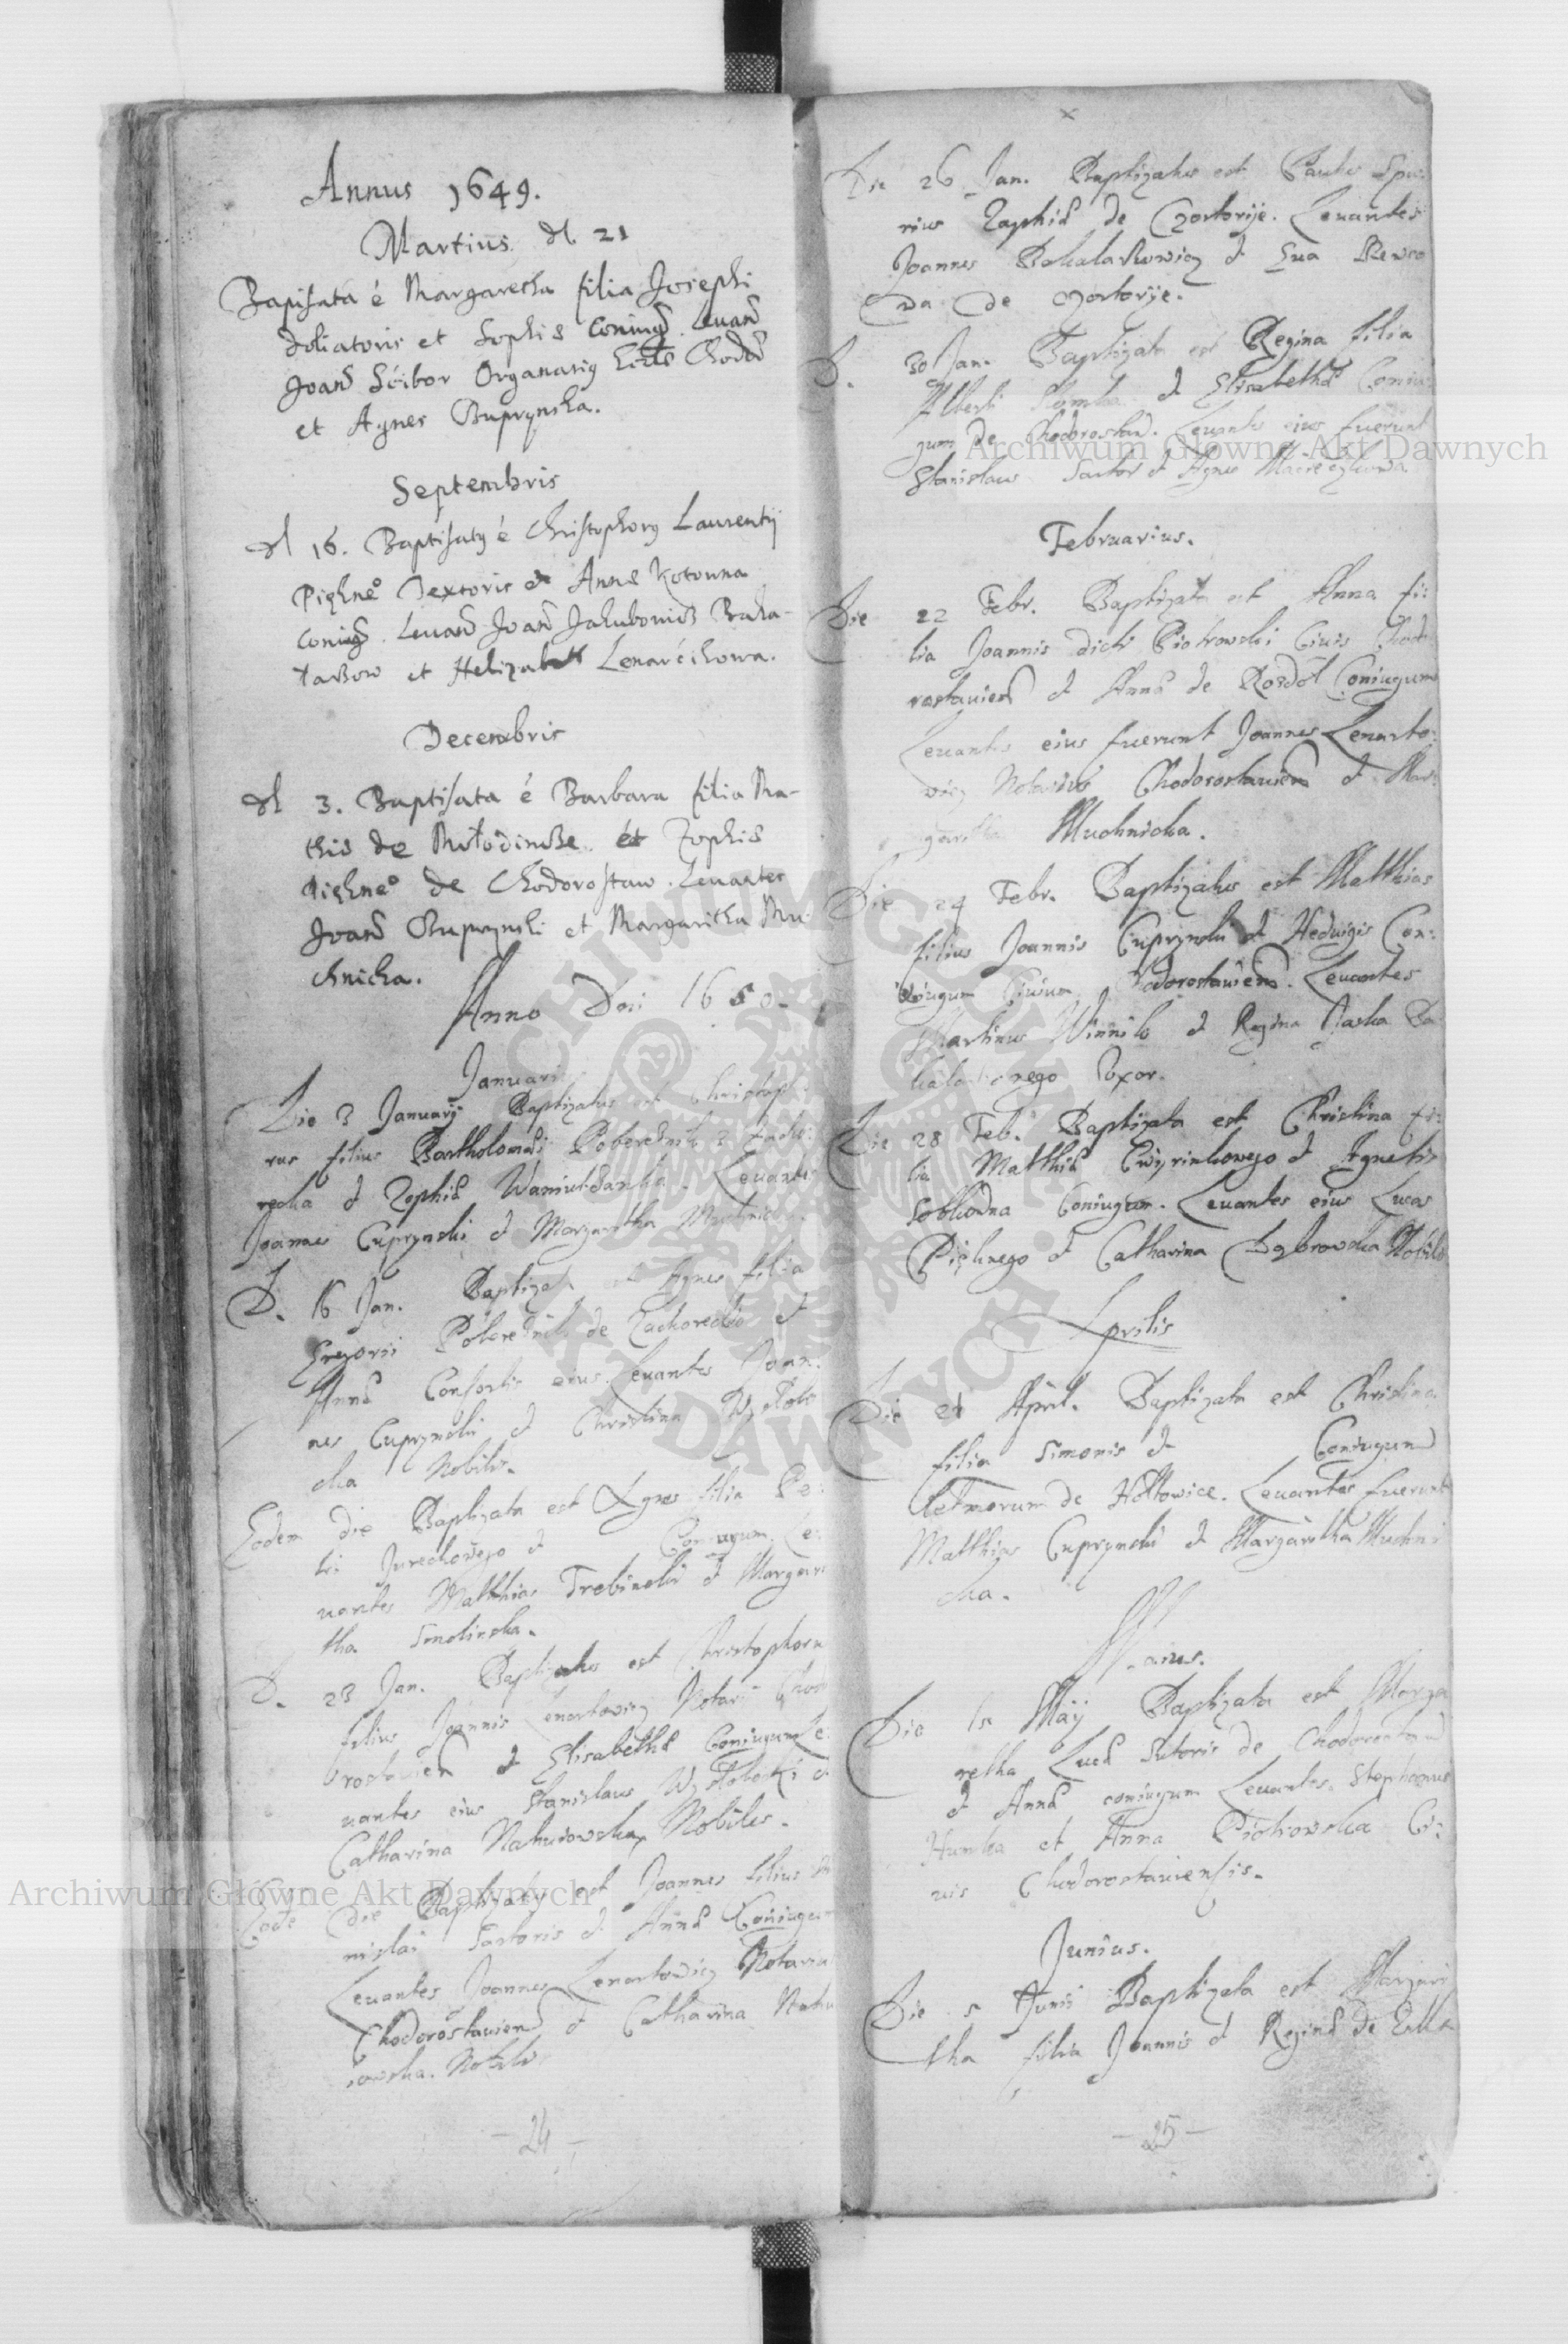 Annus 1649.
Martius d 21
Baptisata é Margaretha filia Josephi
doliatoris et Sophiæ coniug. Levand
Joan Scibor Organariq Eccle Chodo
et Agnes Cuprynska.
Septembris
d 16. Baptisatq é Christophorq Laurentij
Pięknego Textoris et Annæ Kotowna
coniug. Levand Joan Jakubowicz Baka-
larzow et Helizabet Lenarcikowa.
Decembris
d 3. Baptisata é Barbara filia Ma-
thiæ de et Zophiæ
Piękne° de Chodorostaw. Levantes
Joan Cuprynski et Margaritha Mu-
chnicka.
Anno Dni 1650.
Januarii
Die 3 Januarij Baptizatus est Christopho
rus filius Bartholomæi Poberednik z
recka et Zophiæ. Levantes
Joannes Cuprynski et Margaretha Muchnicka.
D. 16 Jan. Baptizata est Agnes filia
Gregorii Poberednik de et
Annæ Consortis eius. Levantes Joan:
nes Cuprynski et Christian
cka Nobiles.
Eodem die Baptizata est Agnes filia Pe:
tri Jureckowego et Coniugum. Le:
uantes Matthias Trebinski et Margare
tha Smolinska.
D. 23 Jan. Baptizatus est Christophoru
filius Joannis Lenartowicz Notarij Chodo
rostauien et Elisabethæ Coniugum Le:
uantes eius Stanislaus Wysłobocki et
Catharina Nahuiowska Nobiles.
Eode die Baptizatq est Joannes filius
nislai Sartoris et Annæ Coniugum
Levantes Joannes Lenartowicz Notariu
Chodorostauien et Catharina Nahu
iowska. Nobiles
- 24 -
x
Die 26 Jan. Baptizatus est Paulus Spu:
rius Zaphiæ de Czortorije. Levantes
Joannes Bakalarkowicz et Eua
wa de Czortorije.
D. 30 Jan. Baptizata est Regina filia
Alberti et Elisabethæ Coniu:
gum de Chodorostaw. Levantes eius fuerunt
Stanislaus Sartor et Agnes
Februarius.
Die 22 Febr. Baptizata est Anna fi:
lia Joannis dicti Piotrowski Ciuis Chodo
rostauien et Annæ de Rozdoł Coniugum
Levantes eius fuerunt Joannes Lenarto:
wicz Notarius Chodorostauien et Mar:
garetha Muchnicka.
Die 24 Febr. Baptizatus est Matthias
filius Joannis Cuprynski et Hedwigis Con:
iugum Ciuium Chodorostauien. Levantes
Martinus Winnik et Regina Ba
Uxor.
Die 28 Feb. Baptizata est Christina fi:
lia Matthiæ Cwyrinkowego et Agnetis
Sobkowna Coniugum. Levantes eius Lucas
Pięknego et Catharina Dąbrowska Nobiles
Aprilis
Die April. Baptizata est Christina
filia Simonis et Coniugum
de Hołtowice. Levantes fuerunt
Matthias Cuprynski et Margaretha Muchni
cka.
Maius.
Die Maij Baptizata est Marga
retha Lucæ Sutoris de Chodorostaw
et Annæ coniugum Levantes. Stephanus
Humka et Anna Piotrowska Ci:
uis Chodorostauiensis.
Junius.
Die 5 Junii Baptizata est Margari
tha filia Joannis et Reginæ de Villa
- 25 -
Archiwum Główne Akt Dawnych
Archiwum Główne Akt Dawnych
ARCHIWUM GŁÓWNE AKT DAWNYCH